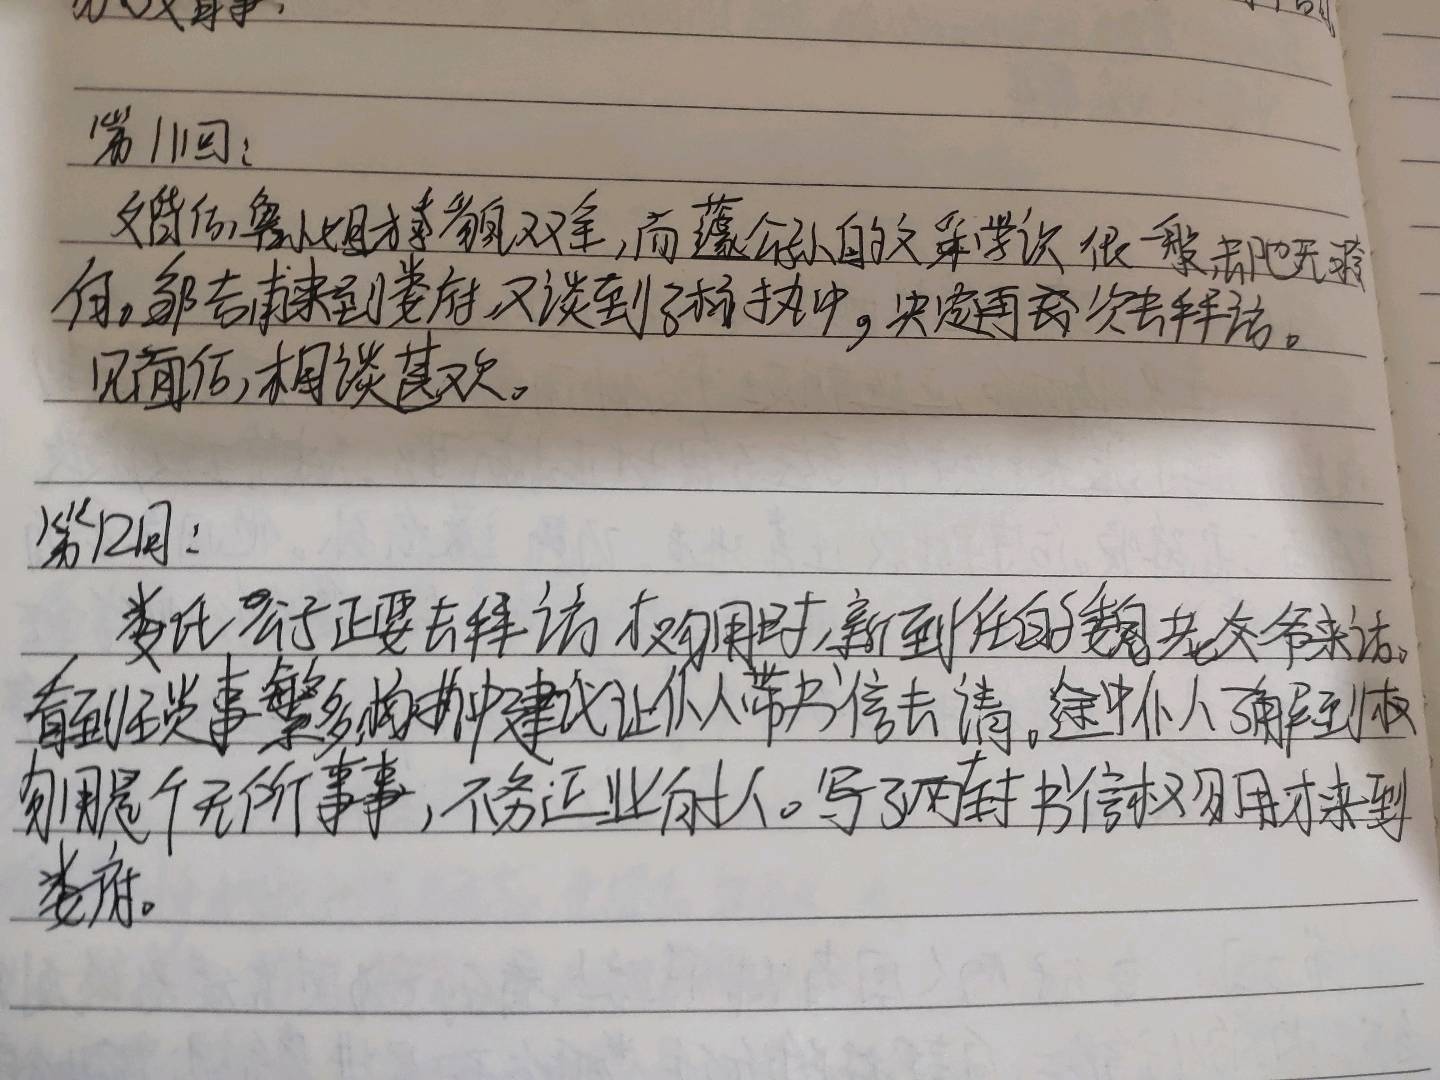 第11回:
婚后,鲁小姐才貌双全,而蘧公孙的文采学识很一般,让她无奈
何。邹吉甫来到娄府,又谈到了杨执中,决定再次去拜访。
见面后,相谈甚欢。
第12回:
娄氏公子正要去拜访权勿用时,新到任的魏老爷来访。
看到任党事繁多,杨执中建议让仆人带书信去请。途中仆人了解到权
勿用是个无所事事,不务正业的人。写了两封书信权勿用才来到
娄府。